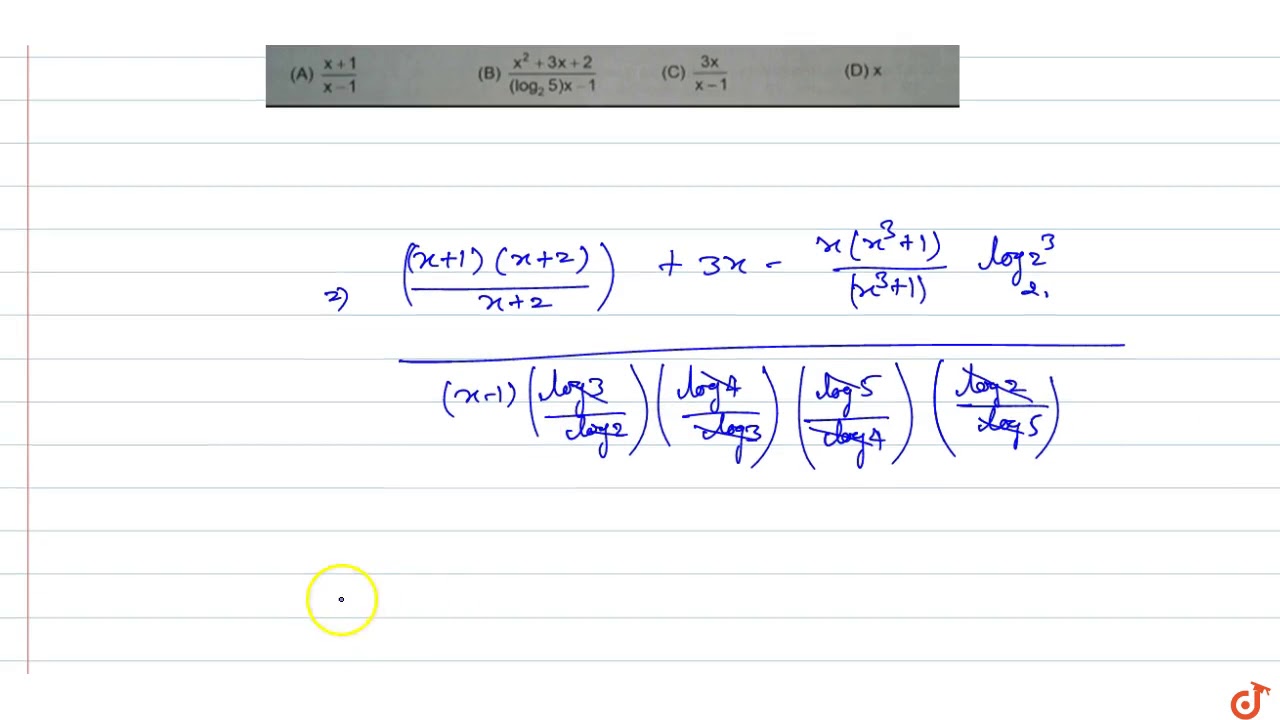 (A) x + 1 / x − 1 (B) x² + 3x + 2 / (log₂ 5)x − 1 (C) 3x / x − 1 (D) x
2) ((x+1) (x+2) / x+2) + 3x - x(x³+1) / (x³+1) log 2³ 2.
(x-1) (log 3 / log 2) (log 4 / log 3) (log 5 / log 4) (log 2 / log 5)